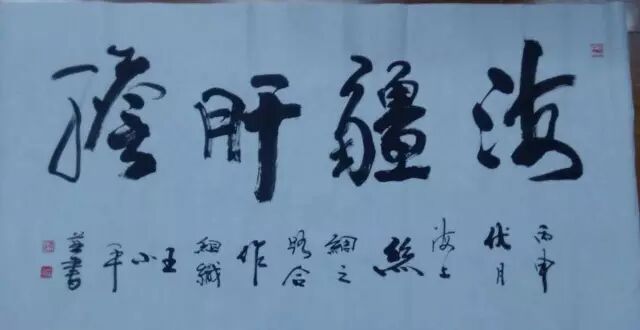 海疆肝膽
丙申伏月海上絲綢之路合作組織王小平並書